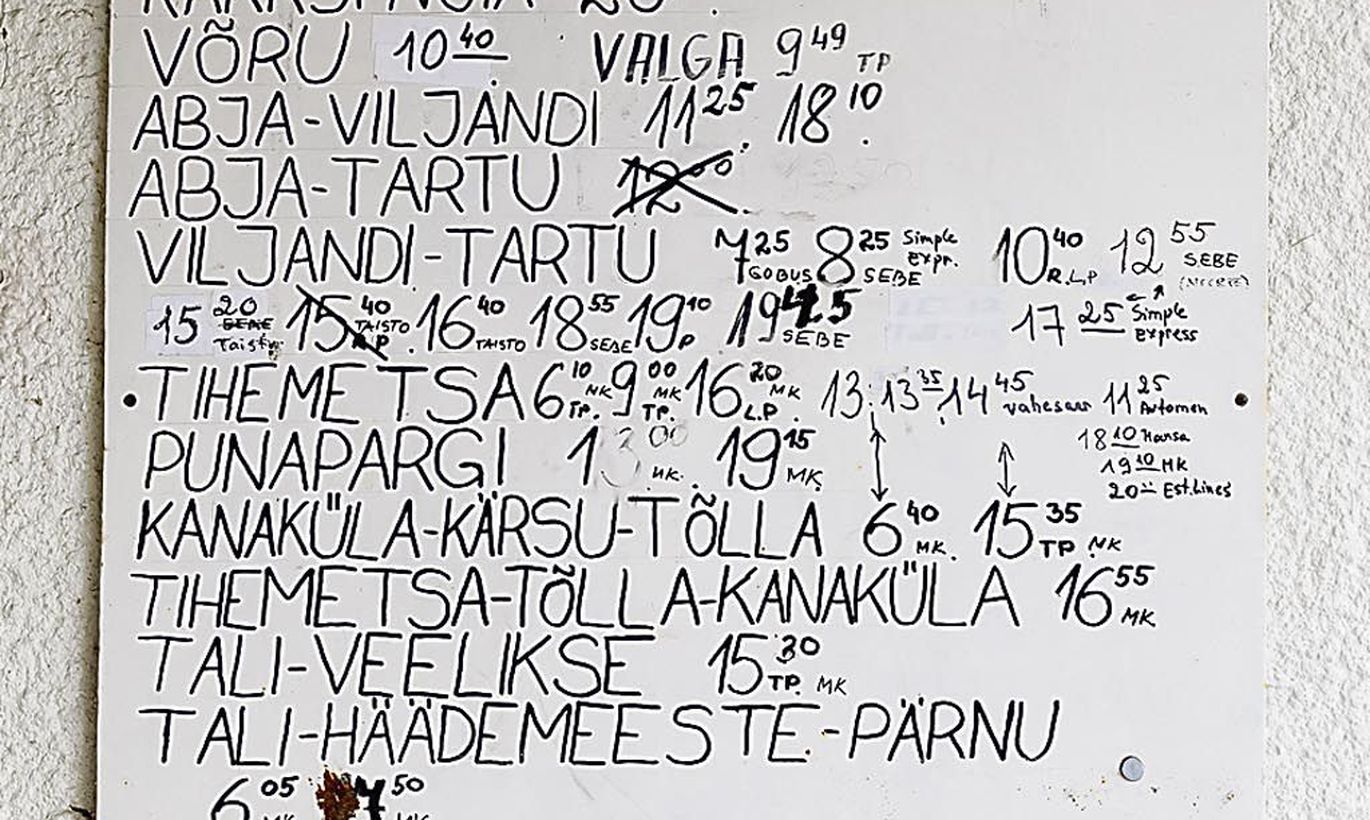 VÕRU 10 40 VALGA 9 49 TP
ABJA-VILJANDI 11 25. 18 10.
ABJA-TARTU 12 00
VILJANDI-TARTU 7 25 GOBUS 8 25 SEBE Simple Expr. 10 40 R.L.P 12 55 SEBE
15 20 SEBE Taisto 15 40 TAISTO 16 40 TAISTO 18 55 SEBE 19 10 P 19 45 SEBE 17 25 Simple Express
TIHEMETSA 6 10 MK TP. 9 00 MK TP. 16 20 MK L.P. 13: 13 35, 14 45 11 25
PUNAPARGI 13 00 MK. 19 15 MK 18 10 Hansa
19 10 MK
20 Est.Lines
KANAKÜLA-KÄRSU-TÕLLA 6 40 MK. 15 35 TP MK
TIHEMETSA-TÕLLA-KANAKÜLA 16 55 MK
TALI-VEELIKSE 15 30 TP MK
TALI-HÄÄDEMEESTE-PÄRNU
6 05 50